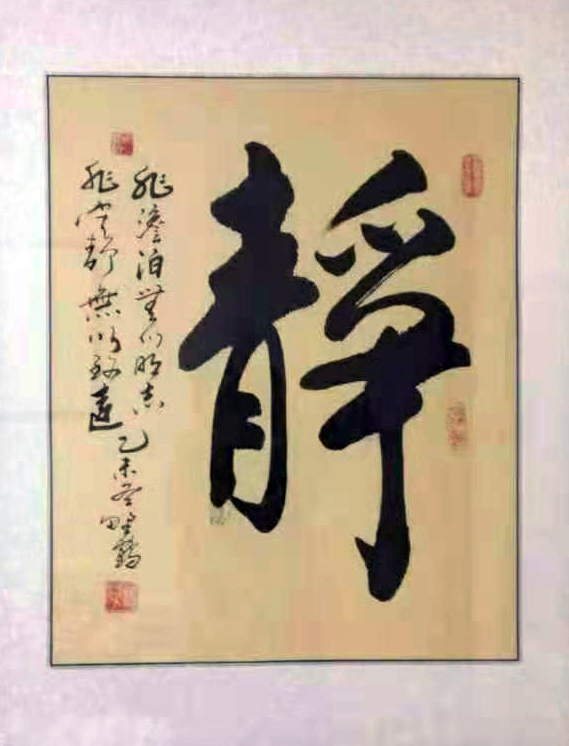 靜
非澹泊無以明志
非寧靜無以致遠
乙未冬野鶴